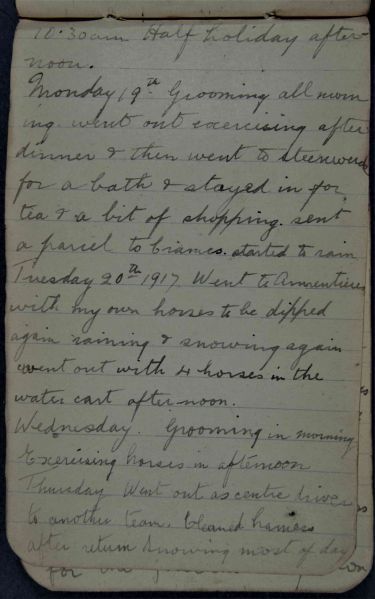 10.30am Half holiday after
noon.
Monday 19th Grooming all morn
ing went out exercising after
dinner & then went to Steenwerck
for a bath & stayed in for
tea & a bit of shopping. sent
a parcel to started to rain
Tuesday 20th 1917 Went to Armentieres
with my own horses to be dipped
again raining & snowing again
went out with 4 horses in the
water cart after noon.
Wednesday. Grooming in morning
Exercising horses in afternoon
Thursday Went out as centre driver
to another team. Cleaned harness
after return Snowing most of day
for